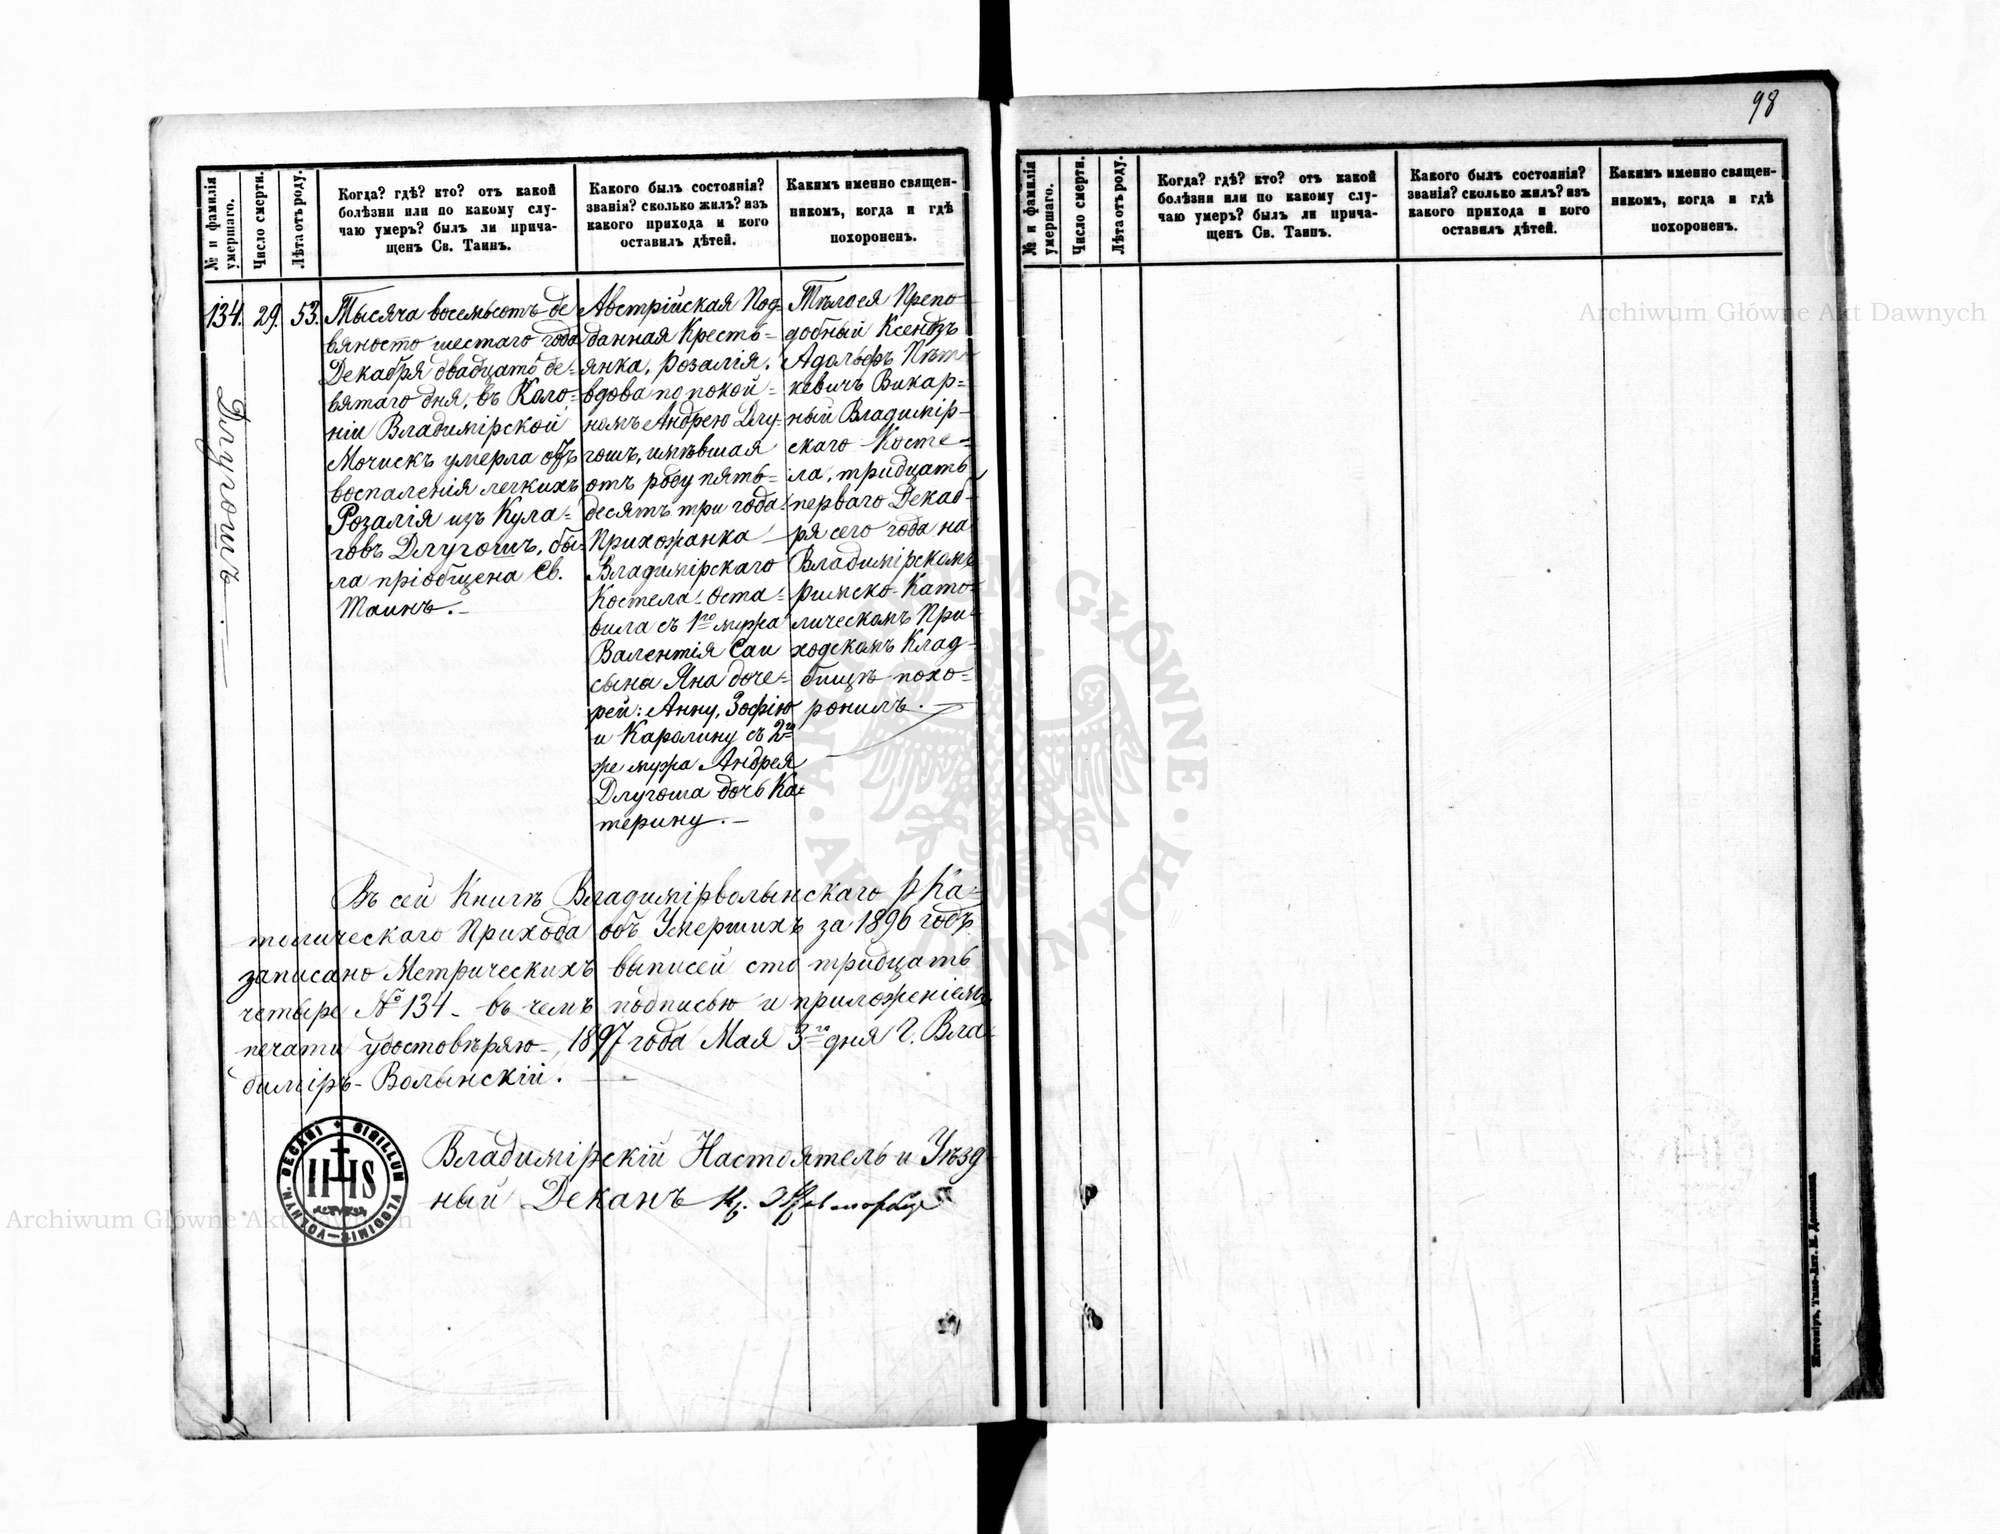 98
№ и фамилія умершаго.
Число смерти.
Лѣта отъ роду.
Когда? гдѣ? кто? отъ какой
болѣзни или по какому слу-
чаю умеръ? былъ ли прича-
щенъ Св. Таинъ.
Какого былъ состоянія?
званія? сколько жилъ? изъ
какого прихода и кого
оставилъ дѣтей.
Какимъ именно священ-
никомъ, когда и гдѣ
похороненъ.
134.
Длугошъ.
29.
53.
Тысяча восемьсотъ де
вяносто шестаго года
Декабря двадцать де-
вятаго дня, въ Коло-
ніи Владимірской
Мочискъ умерла отъ
воспаленія легкихъ
Розалія изъ Кула-
говъ Длугошъ, бы-
ла пріобщена Св.
Таинъ.
Австрійская Под-
данная Кресть-
янка, Розалія,
вдова по покой-
номъ Андрею Длу-
гошъ, имѣвшая
отъ роду пять-
десятъ три года
Прихожанка
Владимірскаго
Костела. Оста-
вила съ 1го мужа
Валентія Саи
сына Яна доче-
рей: Анну, Зофію
и Каролину съ 2го
же мужа Андрея
Длугоша дочь Ка-
терину.
Тѣло ея Препо-
добный Ксендзъ
Адольфъ
кевичъ Викар-
ный Владимір-
скаго Косте-
ла, тридцать
перваго Декаб-
ря сего года на
Владимірскомъ
Римско-Като-
лическомъ При-
ходскомъ Клад-
бищѣ похо-
ронилъ.
Въ сей Книгѣ Владимірволынскаго Р Ка-
толическаго Прихода объ Умершихъ за 1896 годъ
записано Метрическихъ выписей сто тридцать
четыре № 134 - въ чемъ подписью и приложеніемъ
печати удостовѣряю, 1897 года Мая 3го дня Г. Вла-
диміръ-Волынскій.
Владимірскій Настоятель и Уѣзд
ный Деканъ Кс.
SIGILLUM VLODIMIS-VOLHYN. DECANI
IHS
№ и фамилія умершаго.
Число смерти.
Лѣта отъ роду.
Когда? гдѣ? кто? отъ какой
болѣзни или по какому слу-
чаю умеръ? былъ ли прича-
щенъ Св. Таинъ.
Какого былъ состоянія?
званія? сколько жилъ? изъ
какого прихода и кого
оставилъ дѣтей.
Какимъ именно священ-
никомъ, когда и гдѣ
похороненъ.
Житоміръ, Типо-Лит. М. Дененмана.
Archiwum Główne Akt Dawnych
Archiwum Główne Akt Dawnych
ARCHIWUM GŁÓWNE · AKT DAWNYCH ·